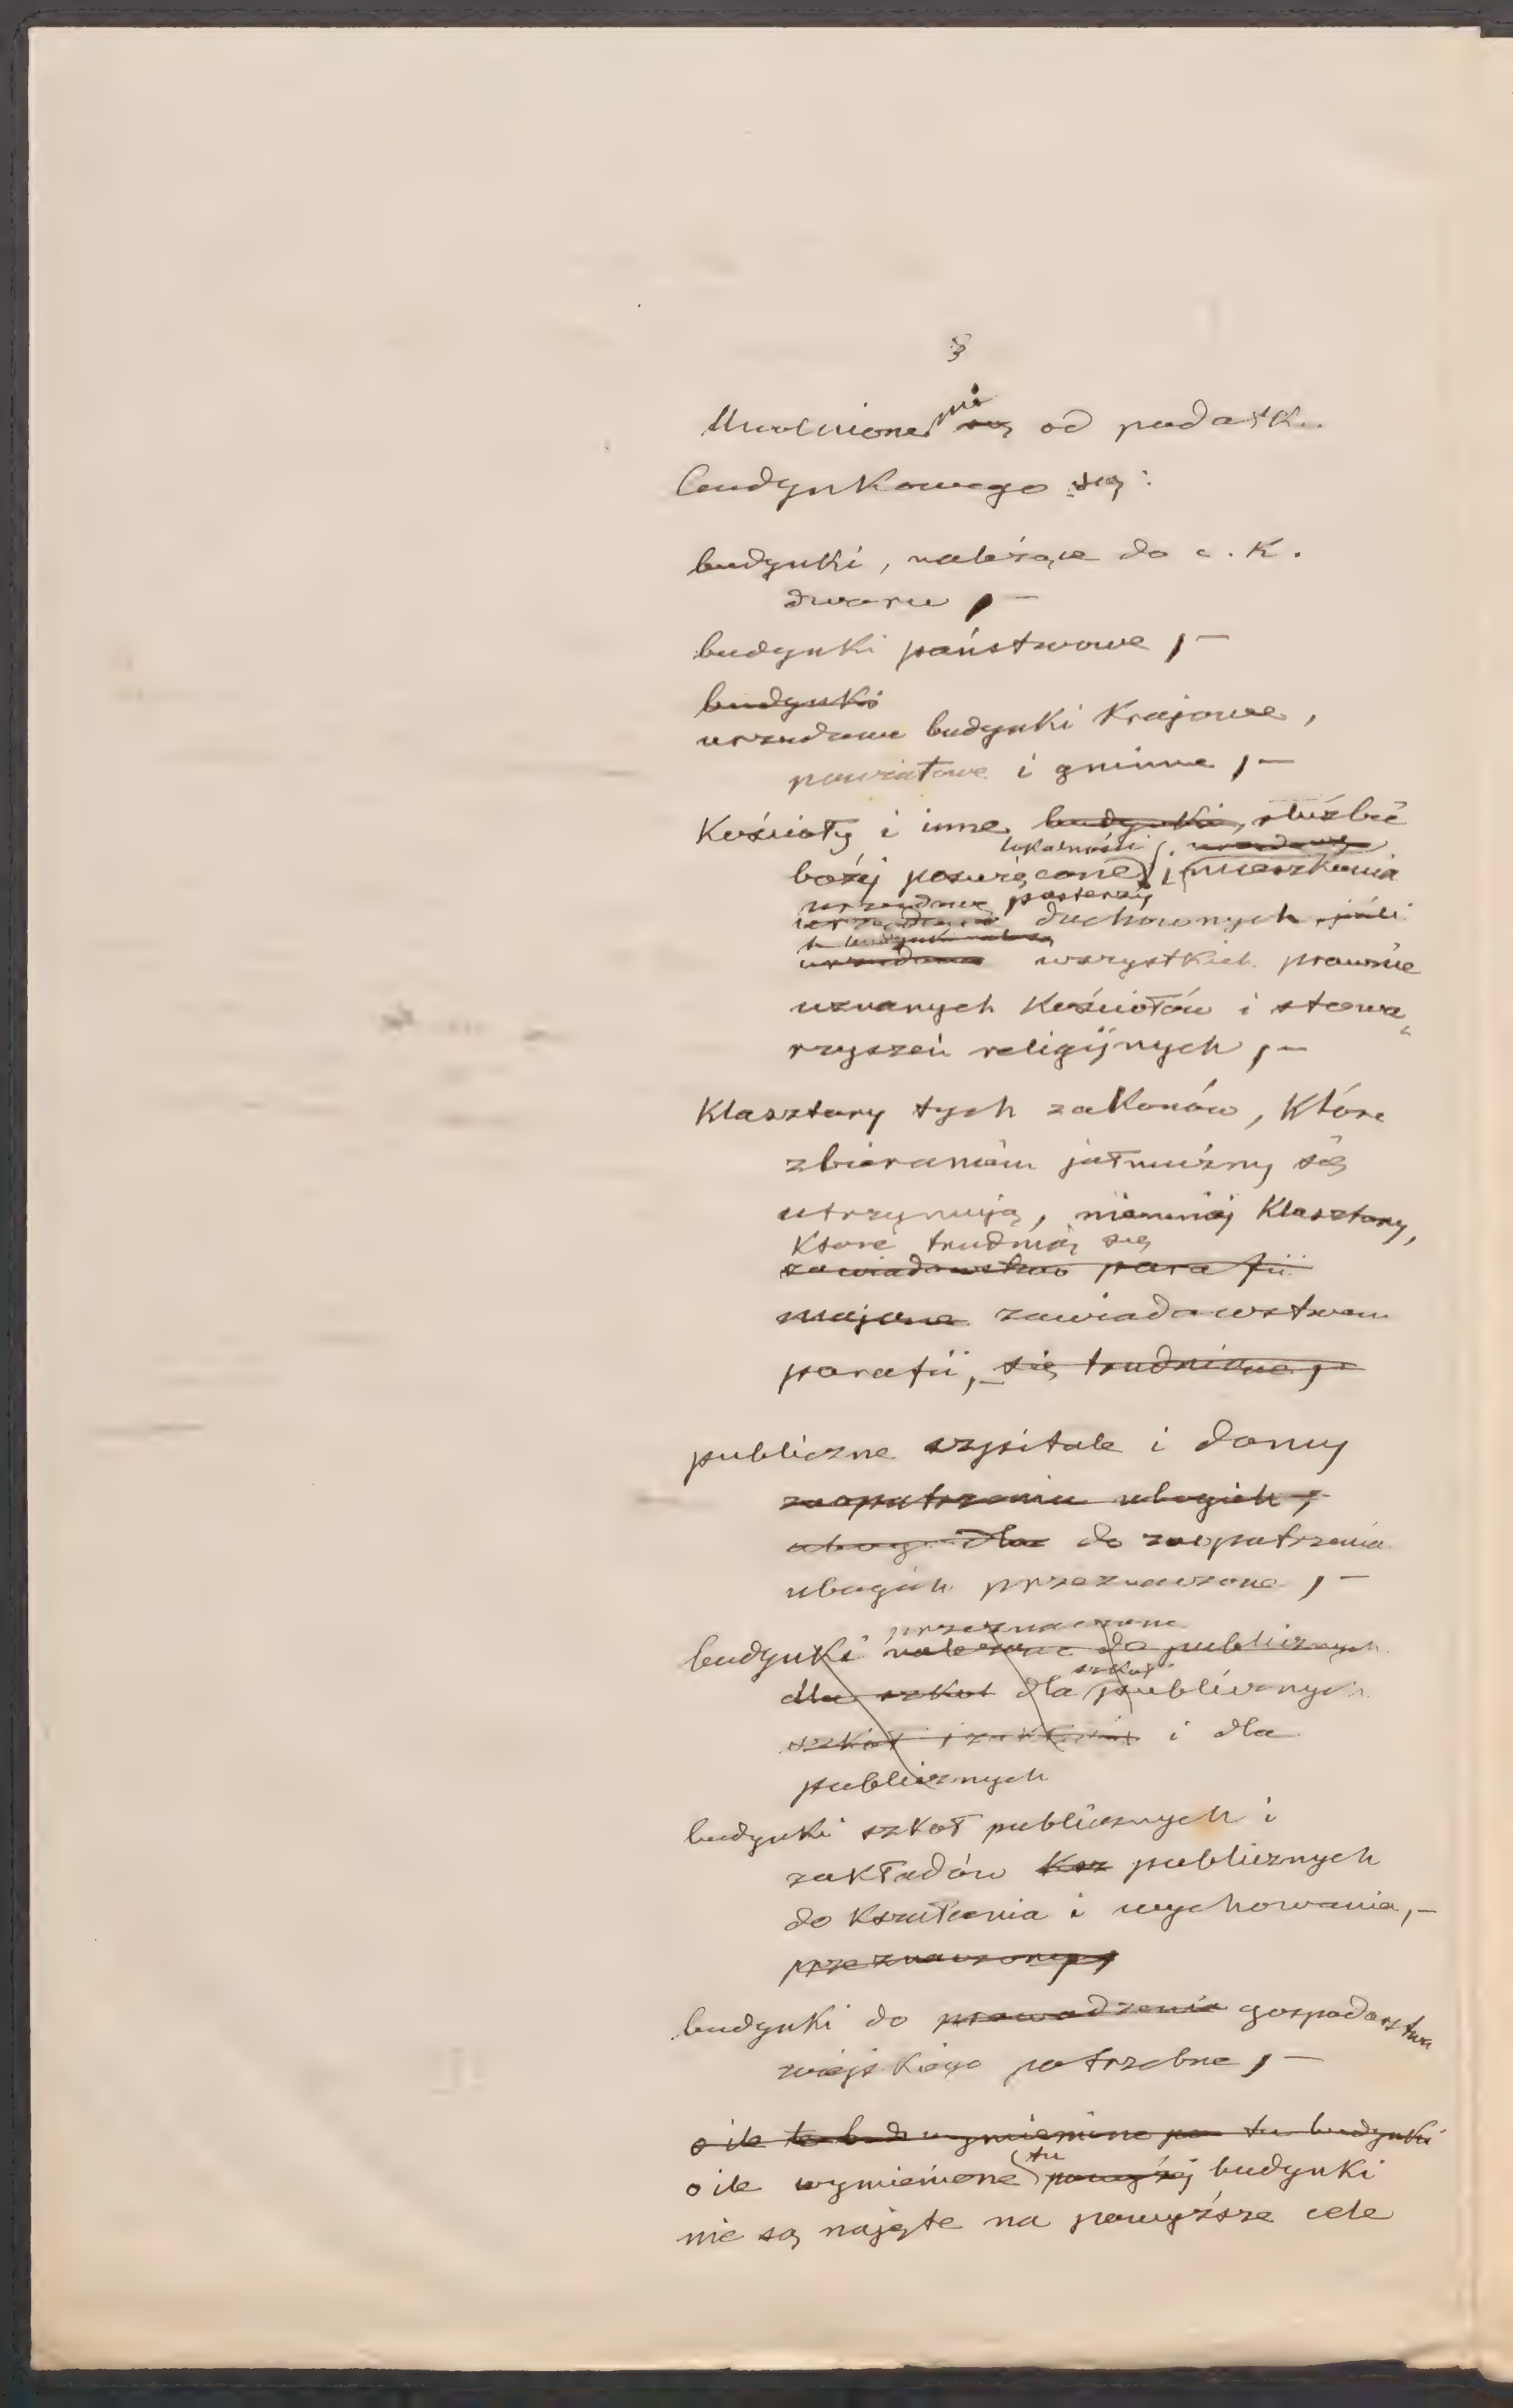 §
Uwolnione mi są od podatk..
budynkowego są :
budynki, należące do c. K.
dworu, —
budynki państwowe, —
budynki
urzędowe budynki Krajowe,
powiatowe i gminne, —
Kościoły i inne budynki, służbie
lokalności
bożej poswięcone, i mieszkania
urzędowe pasterzy
duchownych jeśli
urzędowe wszystkich prawnie
uznanych Kościołów i stowa„
rzyszeń religijnych, —
Klasztory tych zakonów, Które
zbieraniem jałmużny się
utrzymują, niemniej Klasztory,
Które trudnią się
zawiadowstwo parafii
mające zawiadowstwem
parafii, — się trudniące, —
publiczne szpitale i domy
zaopatrzenia ubogich, —
ubog dla do zaopatrzenia
ubogich przeznaczone, —
przeznaczone
budynki należące do publicznych
szkół
dla szkół dla publicznych
szkół i zakładów i dla
publicznych
budynki szkół publicznych i
zakładów Ksz publicznych
do Kształcenia i wychowania, —
przeznaczonych,
budynki do prowadzenia gospodarstwa
wiejskiego potrzebne, —
o ile te bud wymienione po tu budynki
tu
o ile wymienione powyżej budynki
nie są najęte na powyższe cele